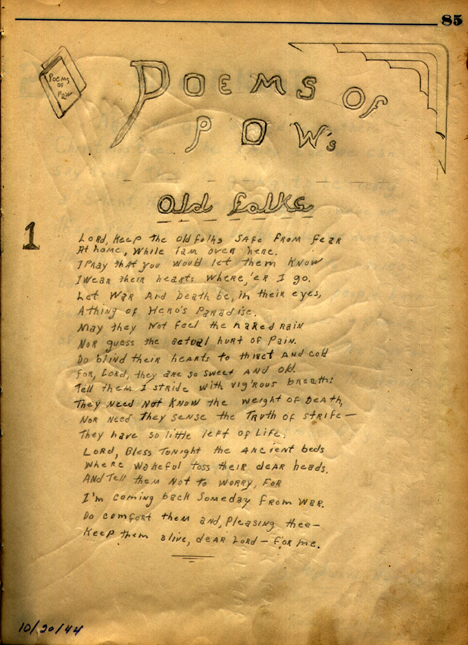 85
Poems of Pows
POEMS OF
POW's
Old Folks
1
Lord, Keep the old folks safe from fear
At home, while I am over here.
I Pray that you would let them know
I wear their hearts where,'er I go.
Let War And Death be, in their eyes,
A thing of Hero's Paradise.
May they Not feel the naked rain
Nor guess the actual hurt of Pain.
Do blind their hearts to thirst AND cold
For, Lord, they are so sweet AND old.
Tell them I stride with vig'rous breath:
They Need Not Know the weight of Death,
Nor Need They sense the Truth of strife—
They have so little left of Life.
Lord, Bless Tonight the ancient beds
Where wakeful toss their dear heads.
AND Tell them Not to worry, For
I'm coming back Someday From War.
Do comfort them and, Pleasing thee—
Keep them alive, dear Lord — For me.
10/20/44